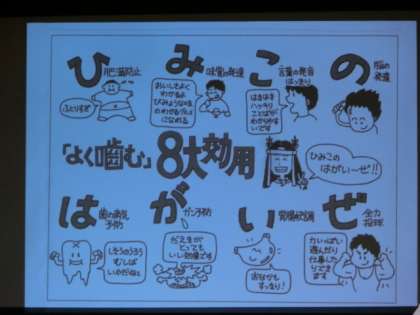 ひ 肥満防止
み 味覚の発達
こ 言葉の発音
はっきり
の 脳の
発達
ふとりすぎ
おいしさよく
わかるよ
びみょうな味も
はきはき
ハッキリ
ことばが
わかりやす
いです
「よく噛む」8大効用
ひみこの
はがい〜ぜ!!
は 歯の病気
予防
が ガン予防
い 胃腸快調
ぜ 全力
投球
しそうのうろう
むしば
いやだねぇ
だえきが
とっても
いい効果です
おなかも
すっきり!
力いっぱい
遊んだり
仕事した
りできま
す